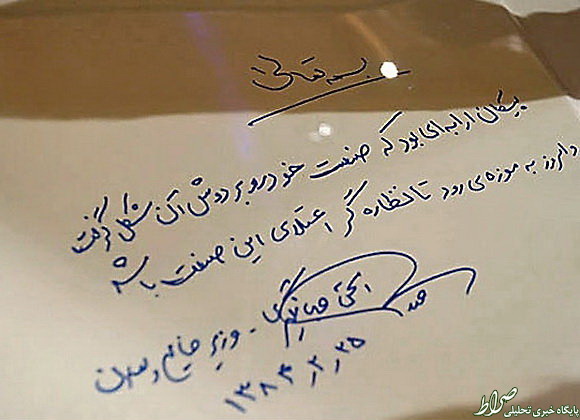 بسمه تعالی
پیکان ارابه‌ای بود که صنعت خودرو بر دوش آن شکل گرفت
و امروز به موزه می‌رود تا نظاره‌گر اعتلای این صنعت باشد
اسحق جهانگیری - وزیر صنایع و معادن
۱۳۸۴،۲،۲۵
صراط
پایگاه خبری تحلیلی